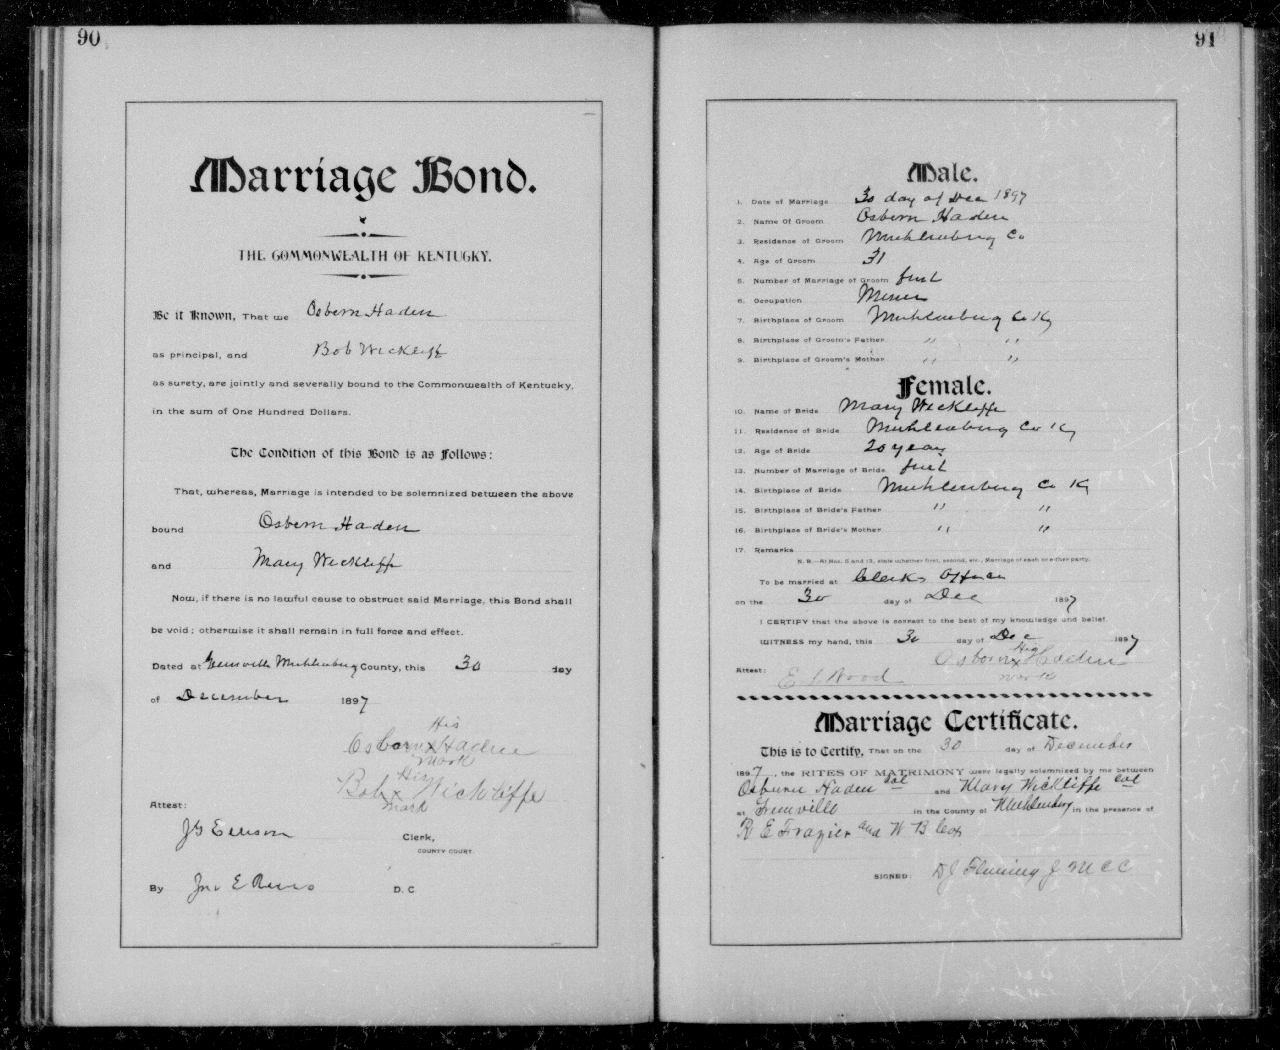 90
Marriage Bond.
THE COMMONWEALTH OF KENTUCKY.
Be it Known, That we Osbern Haden
as principal, and Bob Wickliff
as surety, are jointly and severally bound to the Commonwealth of Kentucky,
in the sum of One Hundred Dollars.
The Condition of this Bond is as follows:
That, whereas, Marriage is intended to be solemnized between the above
bound Osbern Haden
and Mary Wickliffe
Now, if there is no lawful cause to obstruct said Marriage, this Bond shall
be void; otherwise it shall remain in full force and effect.
Dated at Greenville Muhlenburg County, this 30 day
of December 1897
His
Osborn x Haden
Mark
His
Bob x Wickliffe
Mark
Attest:
Clerk,
COUNTY COURT.
By Jno E Reno D. C
91
Male.
1. Date of Marriage 30 day of Dec 1897
2. Name Of Groom Osborn Haden
3. Residence of Groom Muhlenburg Co
4. Age of Groom 31
5. Number of Marriage of Groom first
6. Occupation Miner
7. Birthplace of Groom Muhlenburg Co Ky
8. Birthplace of Groom's Father " "
9. Birthplace of Groom's Mother " "
Female.
10. Name of Bride Mary Wickliffe
11. Residence of Bride Muhlenburg Co Ky
12. Age of Bride 20 years
13. Number of Marriage of Bride first
14. Birthplace of Bride Muhlenburg Co Ky
15. Birthplace of Bride's Father " "
16. Birthplace of Bride's Mother " "
17. Remarks
N. B.—At Nos. 5 and 13, state whether first, second, etc., Marriage of each or either party.
To be married at Clerks Office
on the 30 day of Dec 1897
I CERTIFY that the above is correct to the best of my knowledge and belief.
WITNESS my hand, this 30 day of Dec 1897
His
Osborn x Haden
Attest: mark
Wood
Marriage Certificate.
This is to Certify, That on the 30 day of December
1897, the RITES OF MATRIMONY were legally solemnized by me between
Osburn Haden col and Mary Wickliffe col
at Greenville in the County of Muhlenburg in the presence of
R E Frazier and W B Cox
SIGNED: D J Fleming J M C C